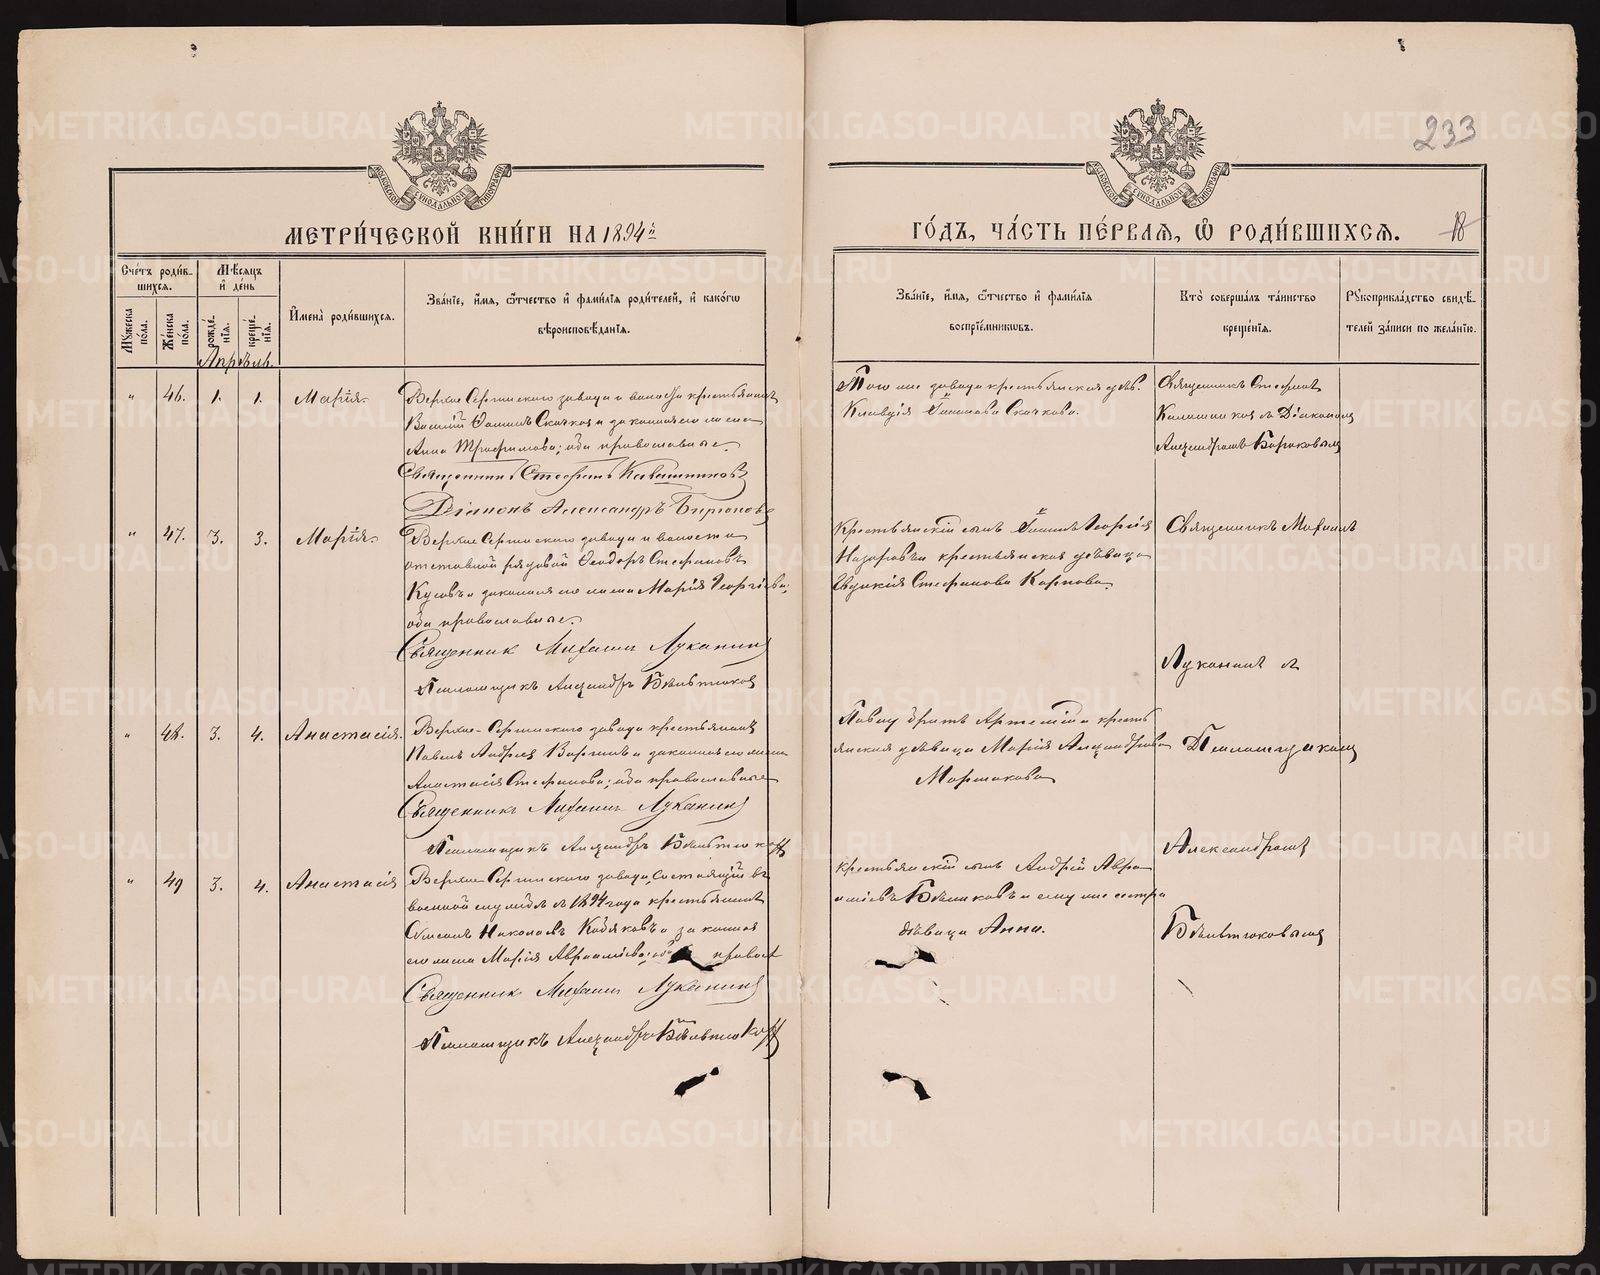 233
МЕТРИ́ЧЕСКОЙ КНИ́ГИ НА 1894й
ГО́ДЪ, ЧА́СТЬ ПЕ́РВАѦ, Ѡ РОДИ́ВШИХСѦ.
18
Сче́тъ роди́в-
шихся.
Му́жеска по́ла.
Же́нска по́ла.
Мѣ́сяцъ и де́нь
рожде́нїя.
креще́нїя.
Имена̀ роди́вшихся.
Зва́нїе, и́мя, ѻ́тчество и фами́лїя роди́телей, и како́гѡ
вѣроисповѣ́данїя.
Зва́нїе, и́мя, ѻ́тчество и фами́лїя
воспрїе́мникѡвъ.
Кто̀ соверша́лъ та́инство
креще́нїя.
Рꙋкоприкла́дство свидѣ́-
телей за́писи по жела́нїю.
Апрѣль.
" 46. 1. 1. Марія.
Верхне Сергинскаго завода и волости крестьянинъ
Скачковъ и законная его жена
Анна Трофимова; оба православные
Священникъ Стефанъ
Діаконъ Александръ
Того же завода крестьянская дѣв.
Клавдія Скачкова.
Священникъ Стефанъ
съ Діакономъ
Александромъ
" 47. 3. 3. Марія.
Верхне Сергинскаго завода и волости
отставной рядовой Ѳеодоръ Стефановъ
и законная его жена Марія Георгіева;
оба православные.
Священник Михаил Луканин
Псаломщикъ Александръ
Крестьянскій сынъ Георгій
Назаровъ и крестьянская дѣвица
Евдокія Стефанова Карпова.
Священникъ Михаилъ
Луканинъ съ
" 48. 3. 4. Анастасія.
Верхне-Сергинскаго завода крестьянинъ
Павелъ Андреев и законная его жена
Анастасія Стефанова; оба православные
Священникъ Михаилъ Луканинъ
Псаломщикъ Александръ
Павлу братъ Артемій и кресть
янская дѣвица Марія Александрова
Псаломщикомъ
Александромъ
" 49 3. 4. Анастасія
Верхне-Сергинскаго завода, состоящій въ
военной службѣ съ 1894 года крестьянинъ
Николаевъ и законная
его жена Марія Авраамова; оба правосл
Священник Михаил Луканин
Псаломщикъ Александръ
крестьянскій сынъ Андрей Авра
амовъ и ему же сестра
дѣвица Анна.
METRIKI.GASO-URAL.RU